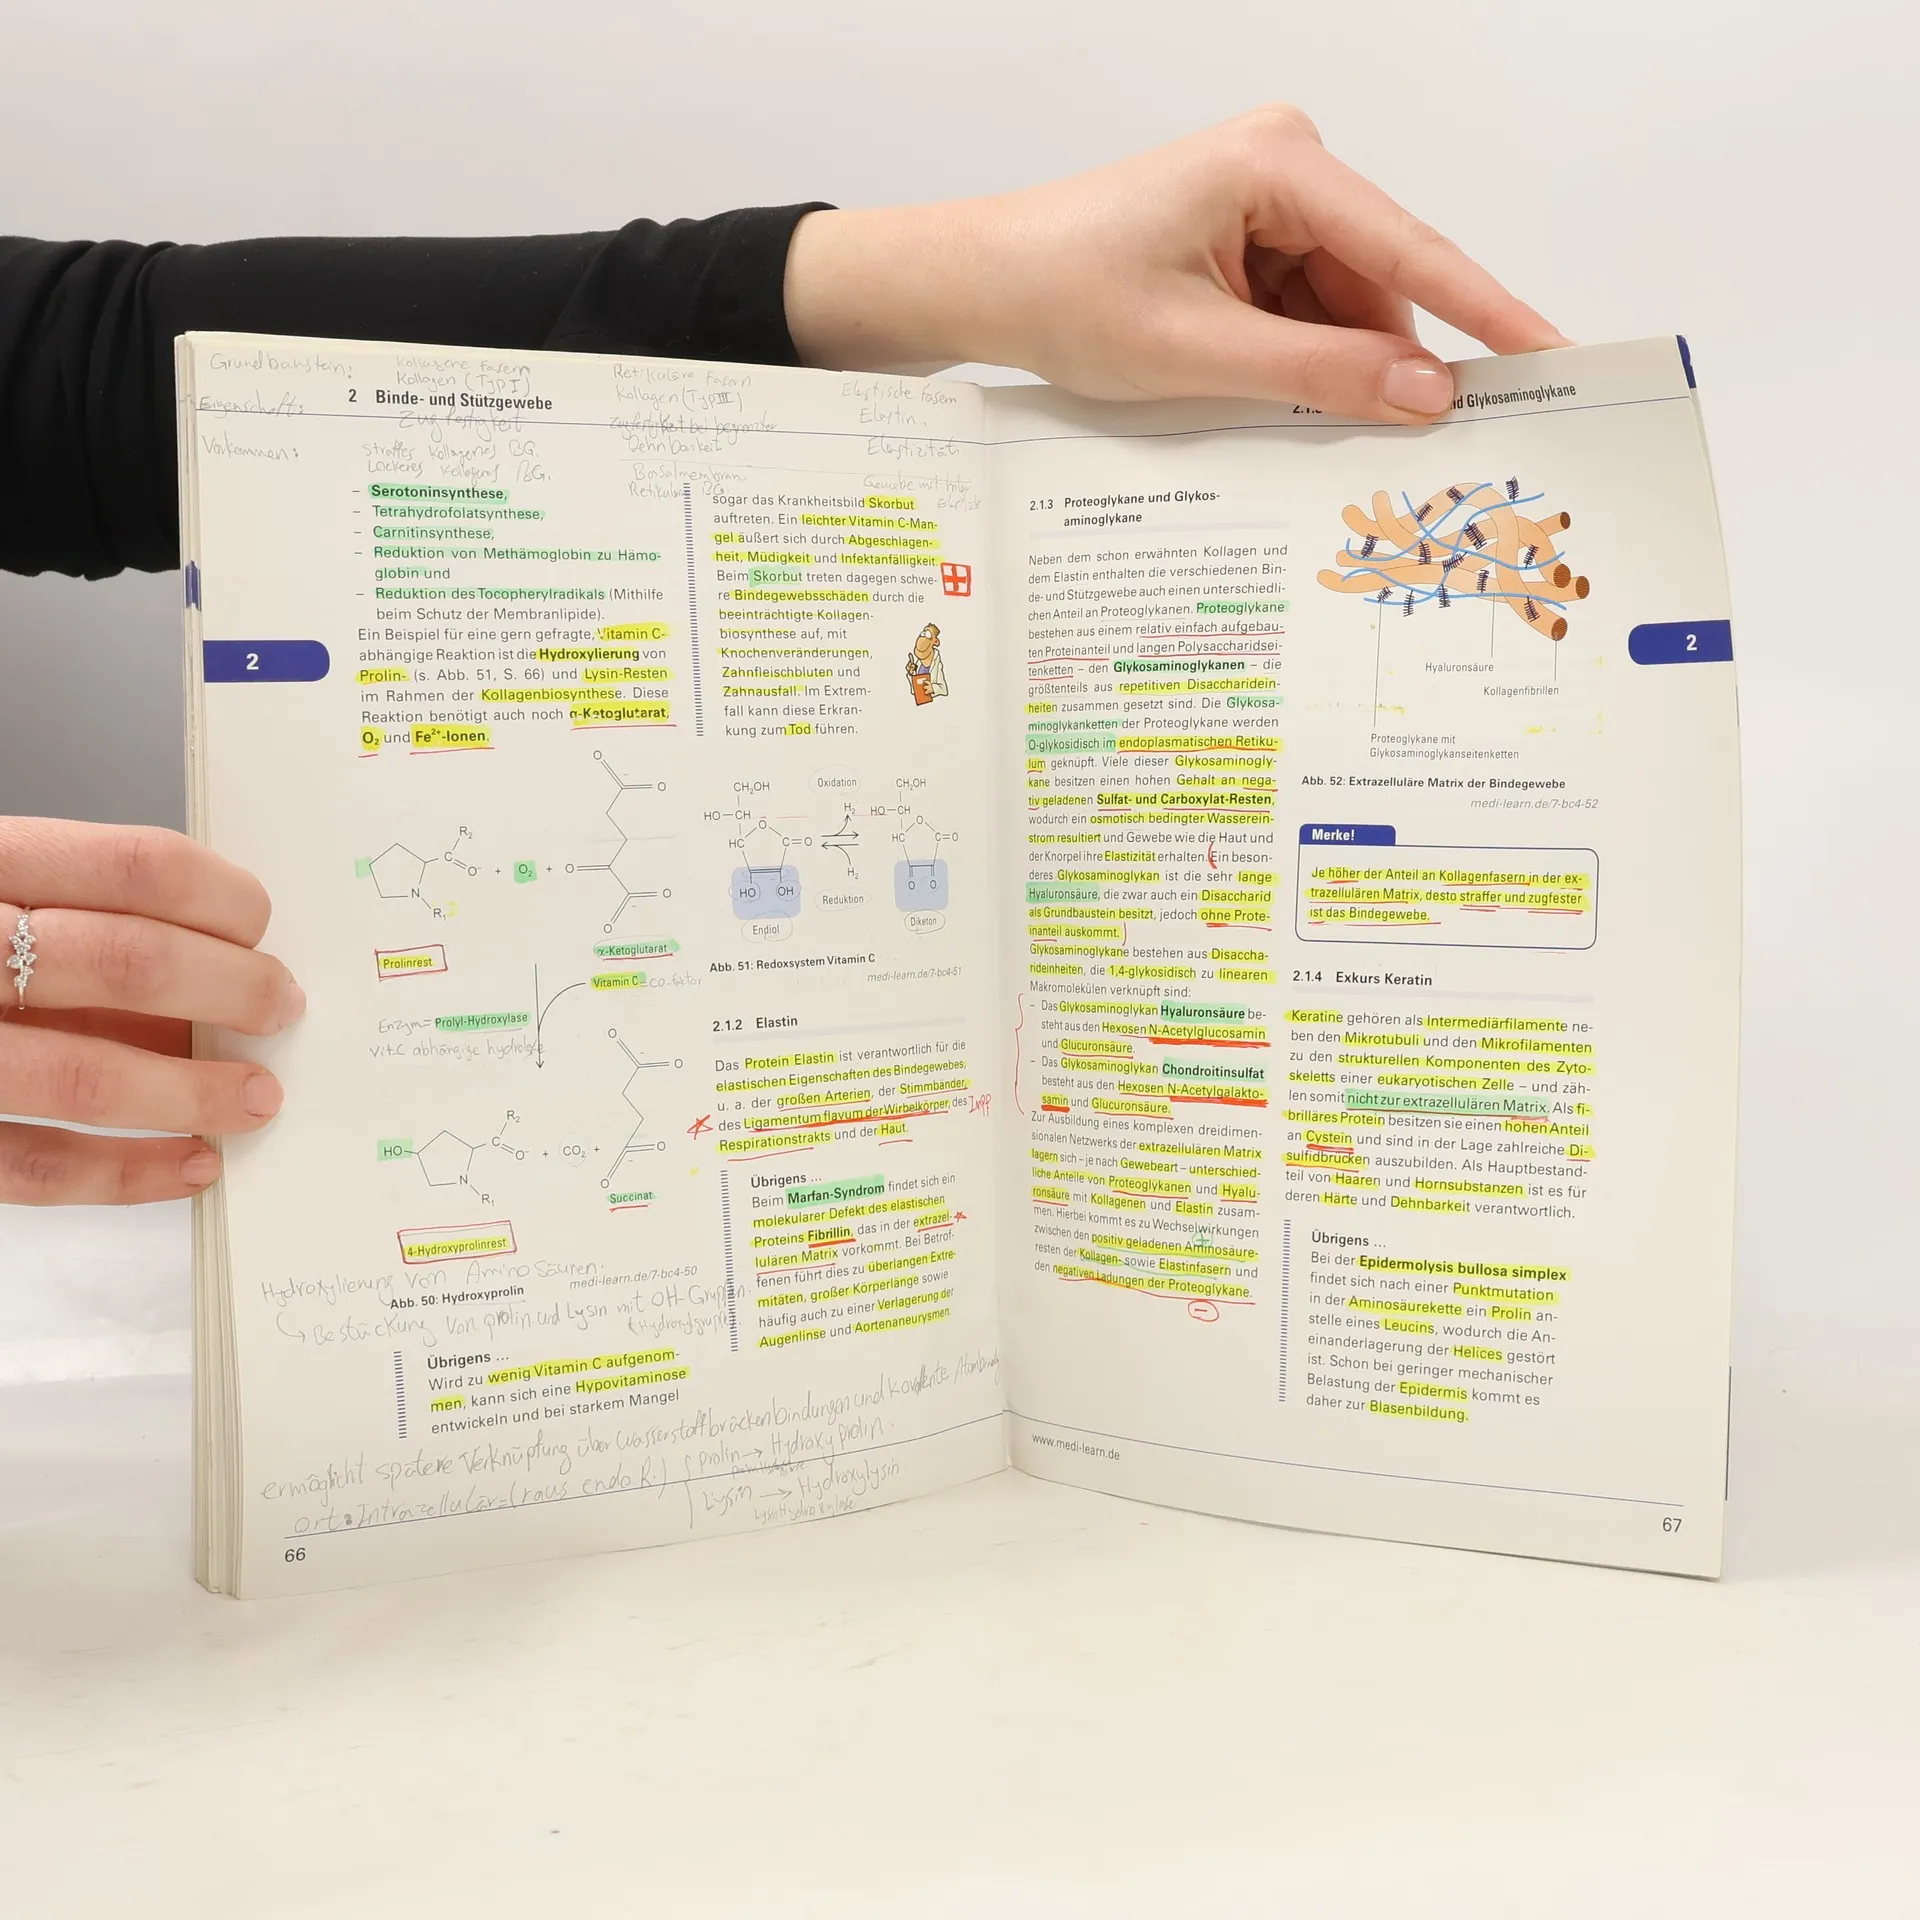 Grundbaustein:
Kollagene Fasern
Kollagen (Typ I)
Retikuläre Fasern
Kollagen (Typ III)
Elastische Fasern
Elastin.
2 Binde- und Stützgewebe
Eigenschaft:
Zugfestigkeit
Zugfestigkeit bei begrenzter
Dehnbarkeit
Elastizität
Vorkommen:
straffes Kollagenes BG.
Lockeres Kollagenes BG.
Basalmembran
BG.
– Serotoninsynthese,
– Tetrahydrofolatsynthese,
– Carnitinsynthese,
– Reduktion von Methämoglobin zu Hämo-
globin und
– Reduktion des Tocopherylradikals (Mithilfe
beim Schutz der Membranlipide).
Ein Beispiel für eine gern gefragte, Vitamin C-
abhängige Reaktion ist die Hydroxylierung von
Prolin- (s. Abb. 51, S. 66) und Lysin-Resten
im Rahmen der Kollagenbiosynthese. Diese
Reaktion benötigt auch noch α-Ketoglutarat,
O₂ und Fe²⁺-Ionen.
R₂
C
O⁻
N
R₁
+
O₂
+
O
O
O
O
O
Prolinrest
α-Ketoglutarat
Vitamin C = Co-faktor
Enzym= Prolyl-Hydroxylase
Vit.C abhängige
HO
R₂
C
O⁻
N
R₁
+ CO₂ +
O
O
O
O
Succinat
4-Hydroxyprolinrest
Hydroxylierung von Amino Säuren.
medi-learn.de/7-bc4-50
Abb. 50: Hydroxyprolin
Bestückung von prolin und Lysin mit OH-Gruppen.
(Hydroxylgruppe)
Übrigens ...
Wird zu wenig Vitamin C aufgenom-
men, kann sich eine Hypovitaminose
entwickeln und bei starkem Mangel
sogar das Krankheitsbild Skorbut
auftreten. Ein leichter Vitamin C-Man-
gel äußert sich durch Abgeschlagen-
heit, Müdigkeit und Infektanfälligkeit.
Beim Skorbut treten dagegen schwe-
re Bindegewebsschäden durch die
beeinträchtigte Kollagen-
biosynthese auf, mit
Knochenveränderungen,
Zahnfleischbluten und
Zahnausfall. Im Extrem-
fall kann diese Erkran-
kung zum Tod führen.
CH₂OH
HO—CH
O
HC
C=O
HO
OH
Endiol
Oxidation
H₂
H₂
Reduktion
CH₂OH
HO—CH
O
HC
C=O
O
O
Diketon
Abb. 51: Redoxsystem Vitamin C
medi-learn.de/7-bc4-51
2.1.2 Elastin
Das Protein Elastin ist verantwortlich für die
elastischen Eigenschaften des Bindegewebes,
u. a. der großen Arterien, der Stimmbänder,
des Ligamentum flavum der Wirbelkörper, des
Respirationstrakts und der Haut.
Übrigens ...
Beim Marfan-Syndrom findet sich ein
molekularer Defekt des elastischen
Proteins Fibrillin, das in der extrazel-
lulären Matrix vorkommt. Bei Betrof-
fenen führt dies zu überlangen Extre-
mitäten, großer Körperlänge sowie
häufig auch zu einer Verlagerung der
Augenlinse und Aortenaneurysmen.
ermöglicht spätere Verknüpfung über Wasserstoffbrückenbindungen und kovalente
Prolin → Hydroxyprolin.
ort: Intrazellulär = (raus endo R.)
Lysin → Hydroxylysin
66
2
2.1.3 Proteoglykane und Glykos-
aminoglykane
Neben dem schon erwähnten Kollagen und
dem Elastin enthalten die verschiedenen Bin-
de- und Stützgewebe auch einen unterschiedli-
chen Anteil an Proteoglykanen. Proteoglykane
bestehen aus einem relativ einfach aufgebau-
ten Proteinanteil und langen Polysaccharidsei-
tenketten – den Glykosaminoglykanen – die
größtenteils aus repetitiven Disaccharidein-
heiten zusammen gesetzt sind. Die Glykosa-
minoglykanketten der Proteoglykane werden
O-glykosidisch im endoplasmatischen Retiku-
lum geknüpft. Viele dieser Glykosaminogly-
kane besitzen einen hohen Gehalt an nega-
tiv geladenen Sulfat- und Carboxylat-Resten,
wodurch ein osmotisch bedingter Wasserein-
strom resultiert und Gewebe wie die Haut und
der Knorpel ihre Elastizität erhalten. Ein beson-
deres Glykosaminoglykan ist die sehr lange
Hyaluronsäure, die zwar auch ein Disaccharid
als Grundbaustein besitzt, jedoch ohne Prote-
inanteil auskommt.
Glykosaminoglykane bestehen aus Disaccha-
rideinheiten, die 1,4-glykosidisch zu linearen
Makromolekülen verknüpft sind:
– Das Glykosaminoglykan Hyaluronsäure be-
steht aus den Hexosen N-Acetylglucosamin
und Glucuronsäure.
– Das Glykosaminoglykan Chondroitinsulfat
besteht aus den Hexosen N-Acetylgalakto-
samin und Glucuronsäure.
Zur Ausbildung eines komplexen dreidimen-
sionalen Netzwerks der extrazellulären Matrix
lagern sich – je nach Gewebeart – unterschied-
liche Anteile von Proteoglykanen und Hyalu-
ronsäure mit Kollagenen und Elastin zusam-
men. Hierbei kommt es zu Wechselwirkungen
zwischen den positiv geladenen Aminosäure-
resten der Kollagen- sowie Elastinfasern und
den negativen Ladungen der Proteoglykane.
nd Glykosaminoglykane
Hyaluronsäure
Kollagenfibrillen
Proteoglykane mit
Glykosaminoglykanseitenketten
Abb. 52: Extrazelluläre Matrix der Bindegewebe
medi-learn.de/7-bc4-52
Merke!
Je höher der Anteil an Kollagenfasern in der ex-
trazellulären Matrix, desto straffer und zugfester
ist das Bindegewebe.
2.1.4 Exkurs Keratin
Keratine gehören als Intermediärfilamente ne-
ben den Mikrotubuli und den Mikrofilamenten
zu den strukturellen Komponenten des Zyto-
skeletts einer eukaryotischen Zelle – und zäh-
len somit nicht zur extrazellulären Matrix. Als fi-
brilläres Protein besitzen sie einen hohen Anteil
an Cystein und sind in der Lage zahlreiche Di-
sulfidbrücken auszubilden. Als Hauptbestand-
teil von Haaren und Hornsubstanzen ist es für
deren Härte und Dehnbarkeit verantwortlich.
Übrigens ...
Bei der Epidermolysis bullosa simplex
findet sich nach einer Punktmutation
in der Aminosäurekette ein Prolin an-
stelle eines Leucins, wodurch die An-
einanderlagerung der Helices gestört
ist. Schon bei geringer mechanischer
Belastung der Epidermis kommt es
daher zur Blasenbildung.
www.medi-learn.de
67
2